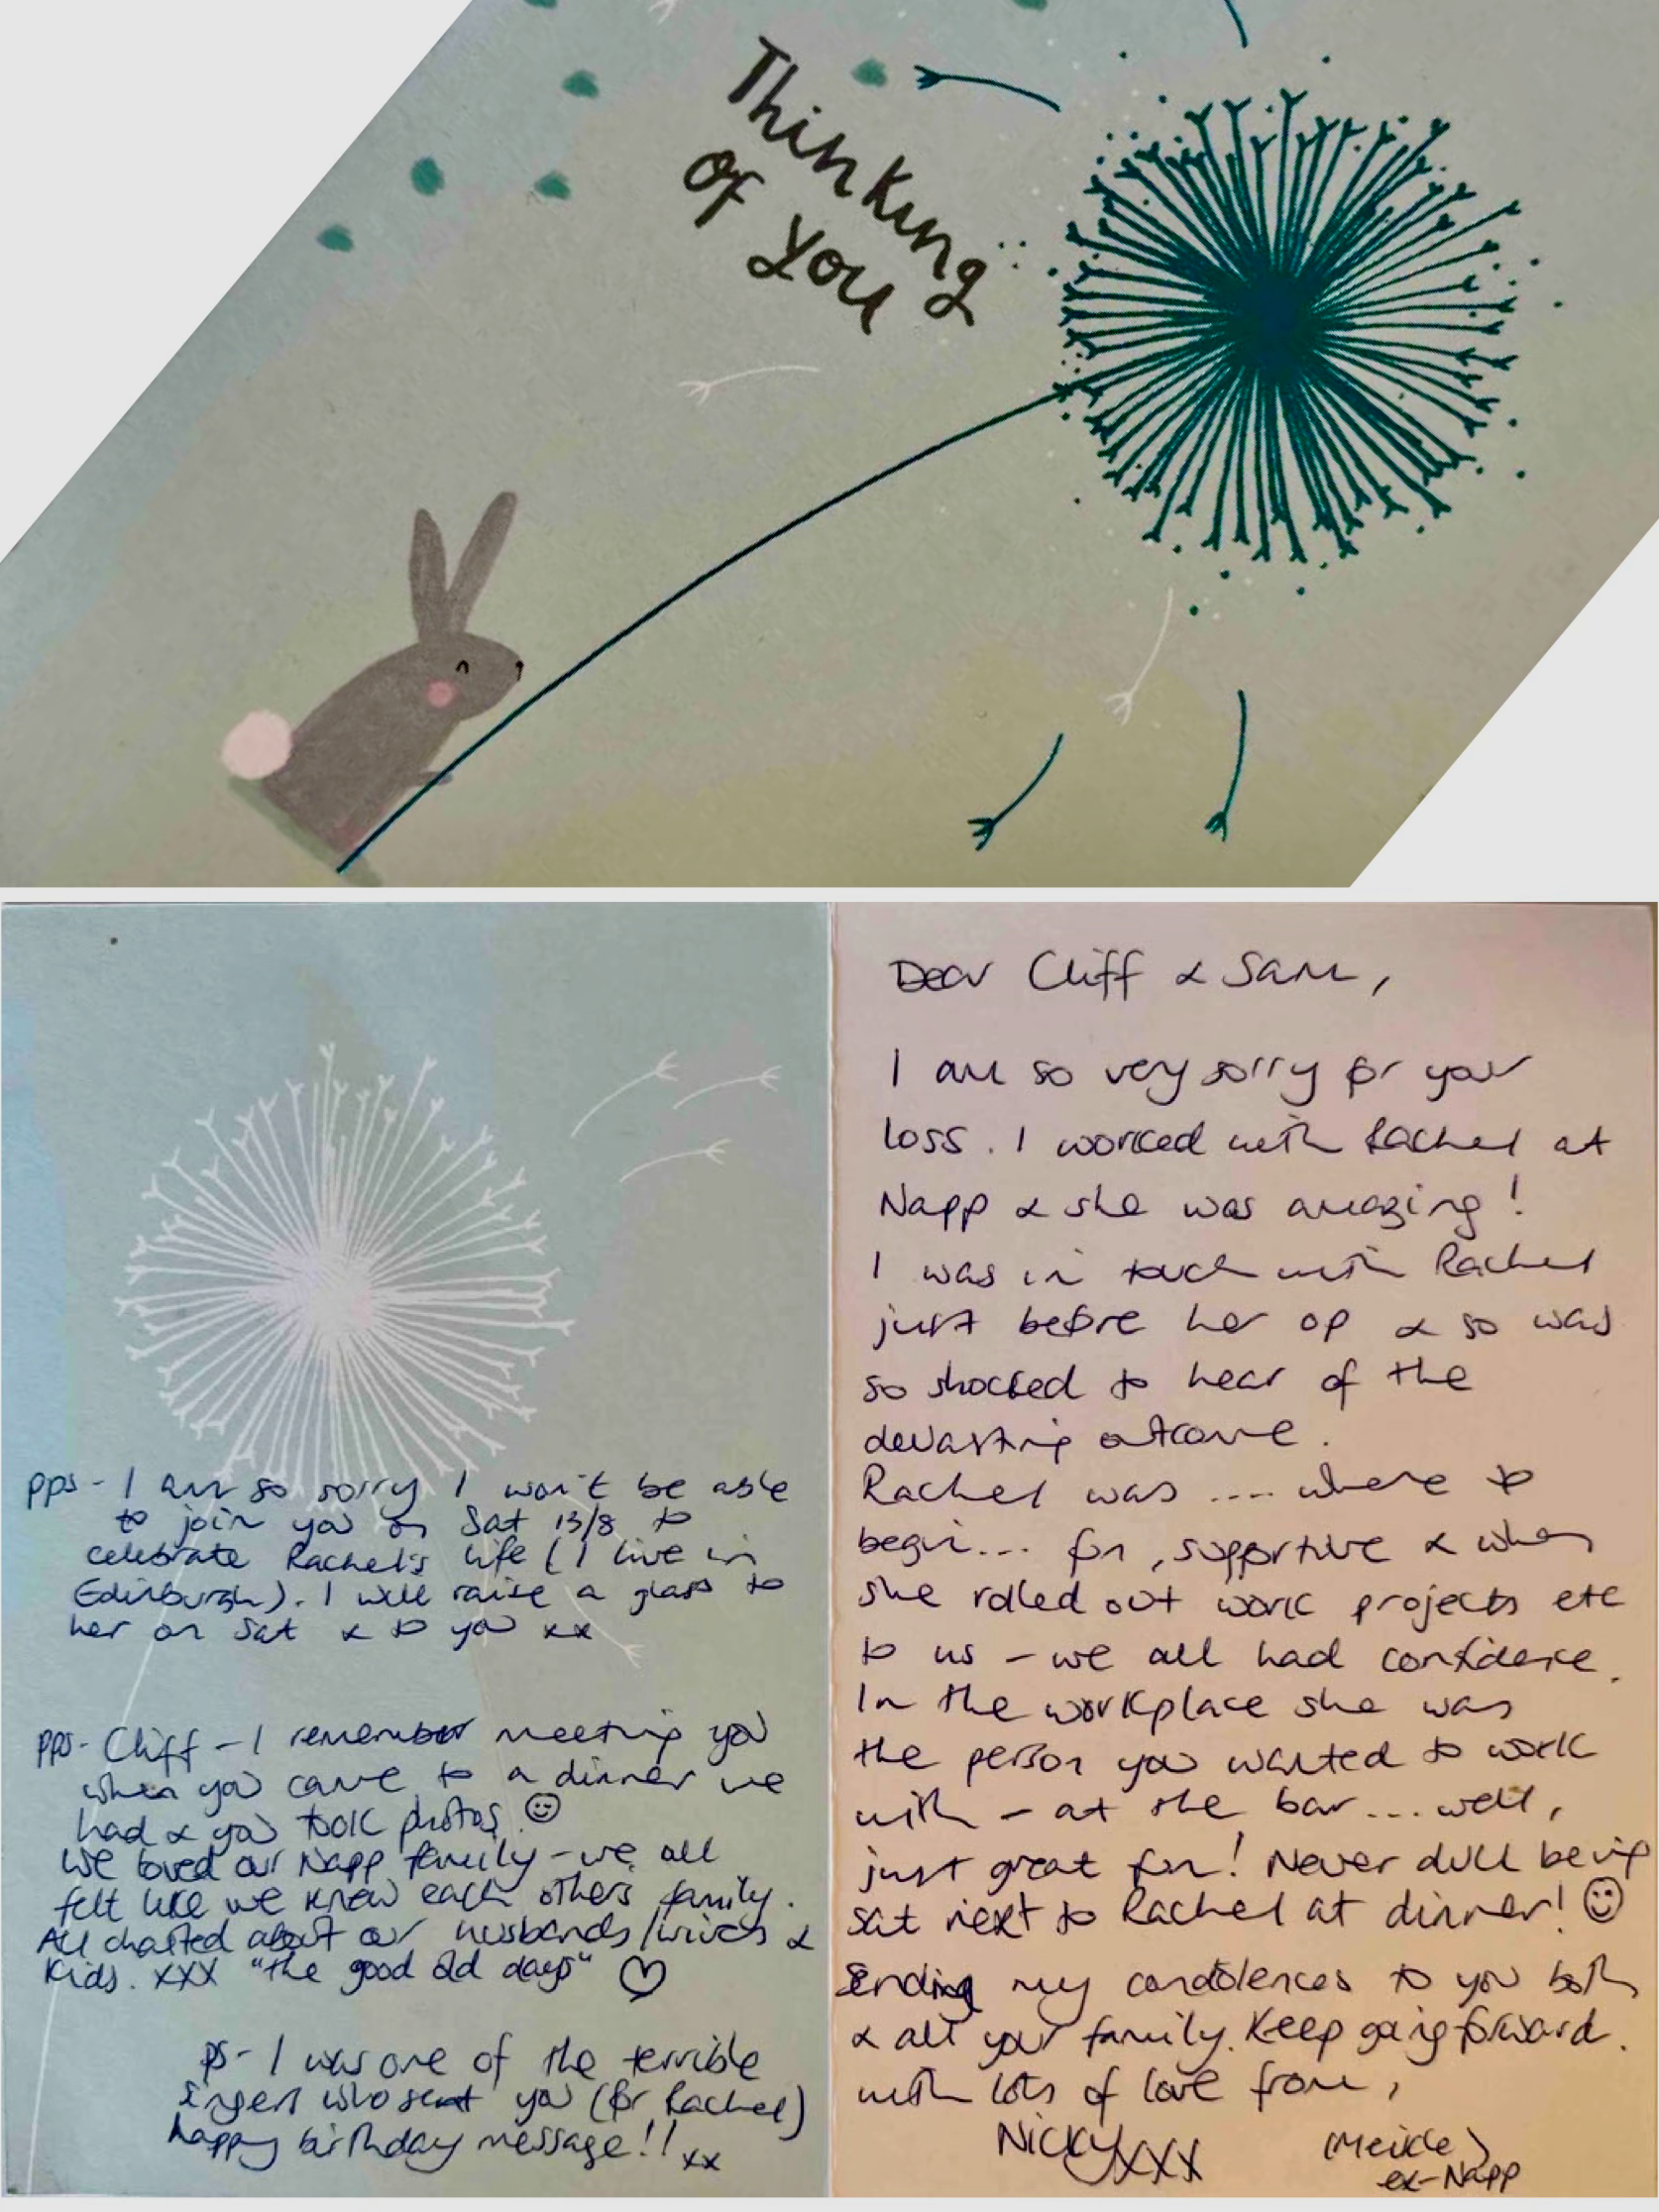 Thinking
of you
pps - I am so sorry I won't be able
to join you on Sat 13/8 to
celebrate Rachel's life (I live in
Edinburgh). I will raise a glass to
her on Sat & to you xx
pps - Cliff - I remember meeting you
when you came to a dinner we
had & you took photos. ☺
We loved our Napp family - we all
felt like we knew each others family.
All chatted about our husbands/wives &
kids. xxx "the good old days" ♡
ps - I was one of the terrible
singers who sent you (for Rachel)
happy birthday message!! xx
Dear Cliff & Sam,
I am so very sorry for your
loss. I worked with Rachel at
Napp & she was amazing!
I was in touch with Rachel
just before her op & so was
so shocked to hear of the
devasting outcome.
Rachel was .... where to
begin... fun, supportive & when
she rolled out work projects etc
to us - we all had confidence.
In the workplace she was
the person you wanted to work
with - at the bar... well,
just great fun! Never dull being
sat next to Rachel at dinner! ☺
Sending my condolences to you both
& all your family. Keep going forward.
with lots of love from,
Nicky xxx (Meikle)
ex-Napp